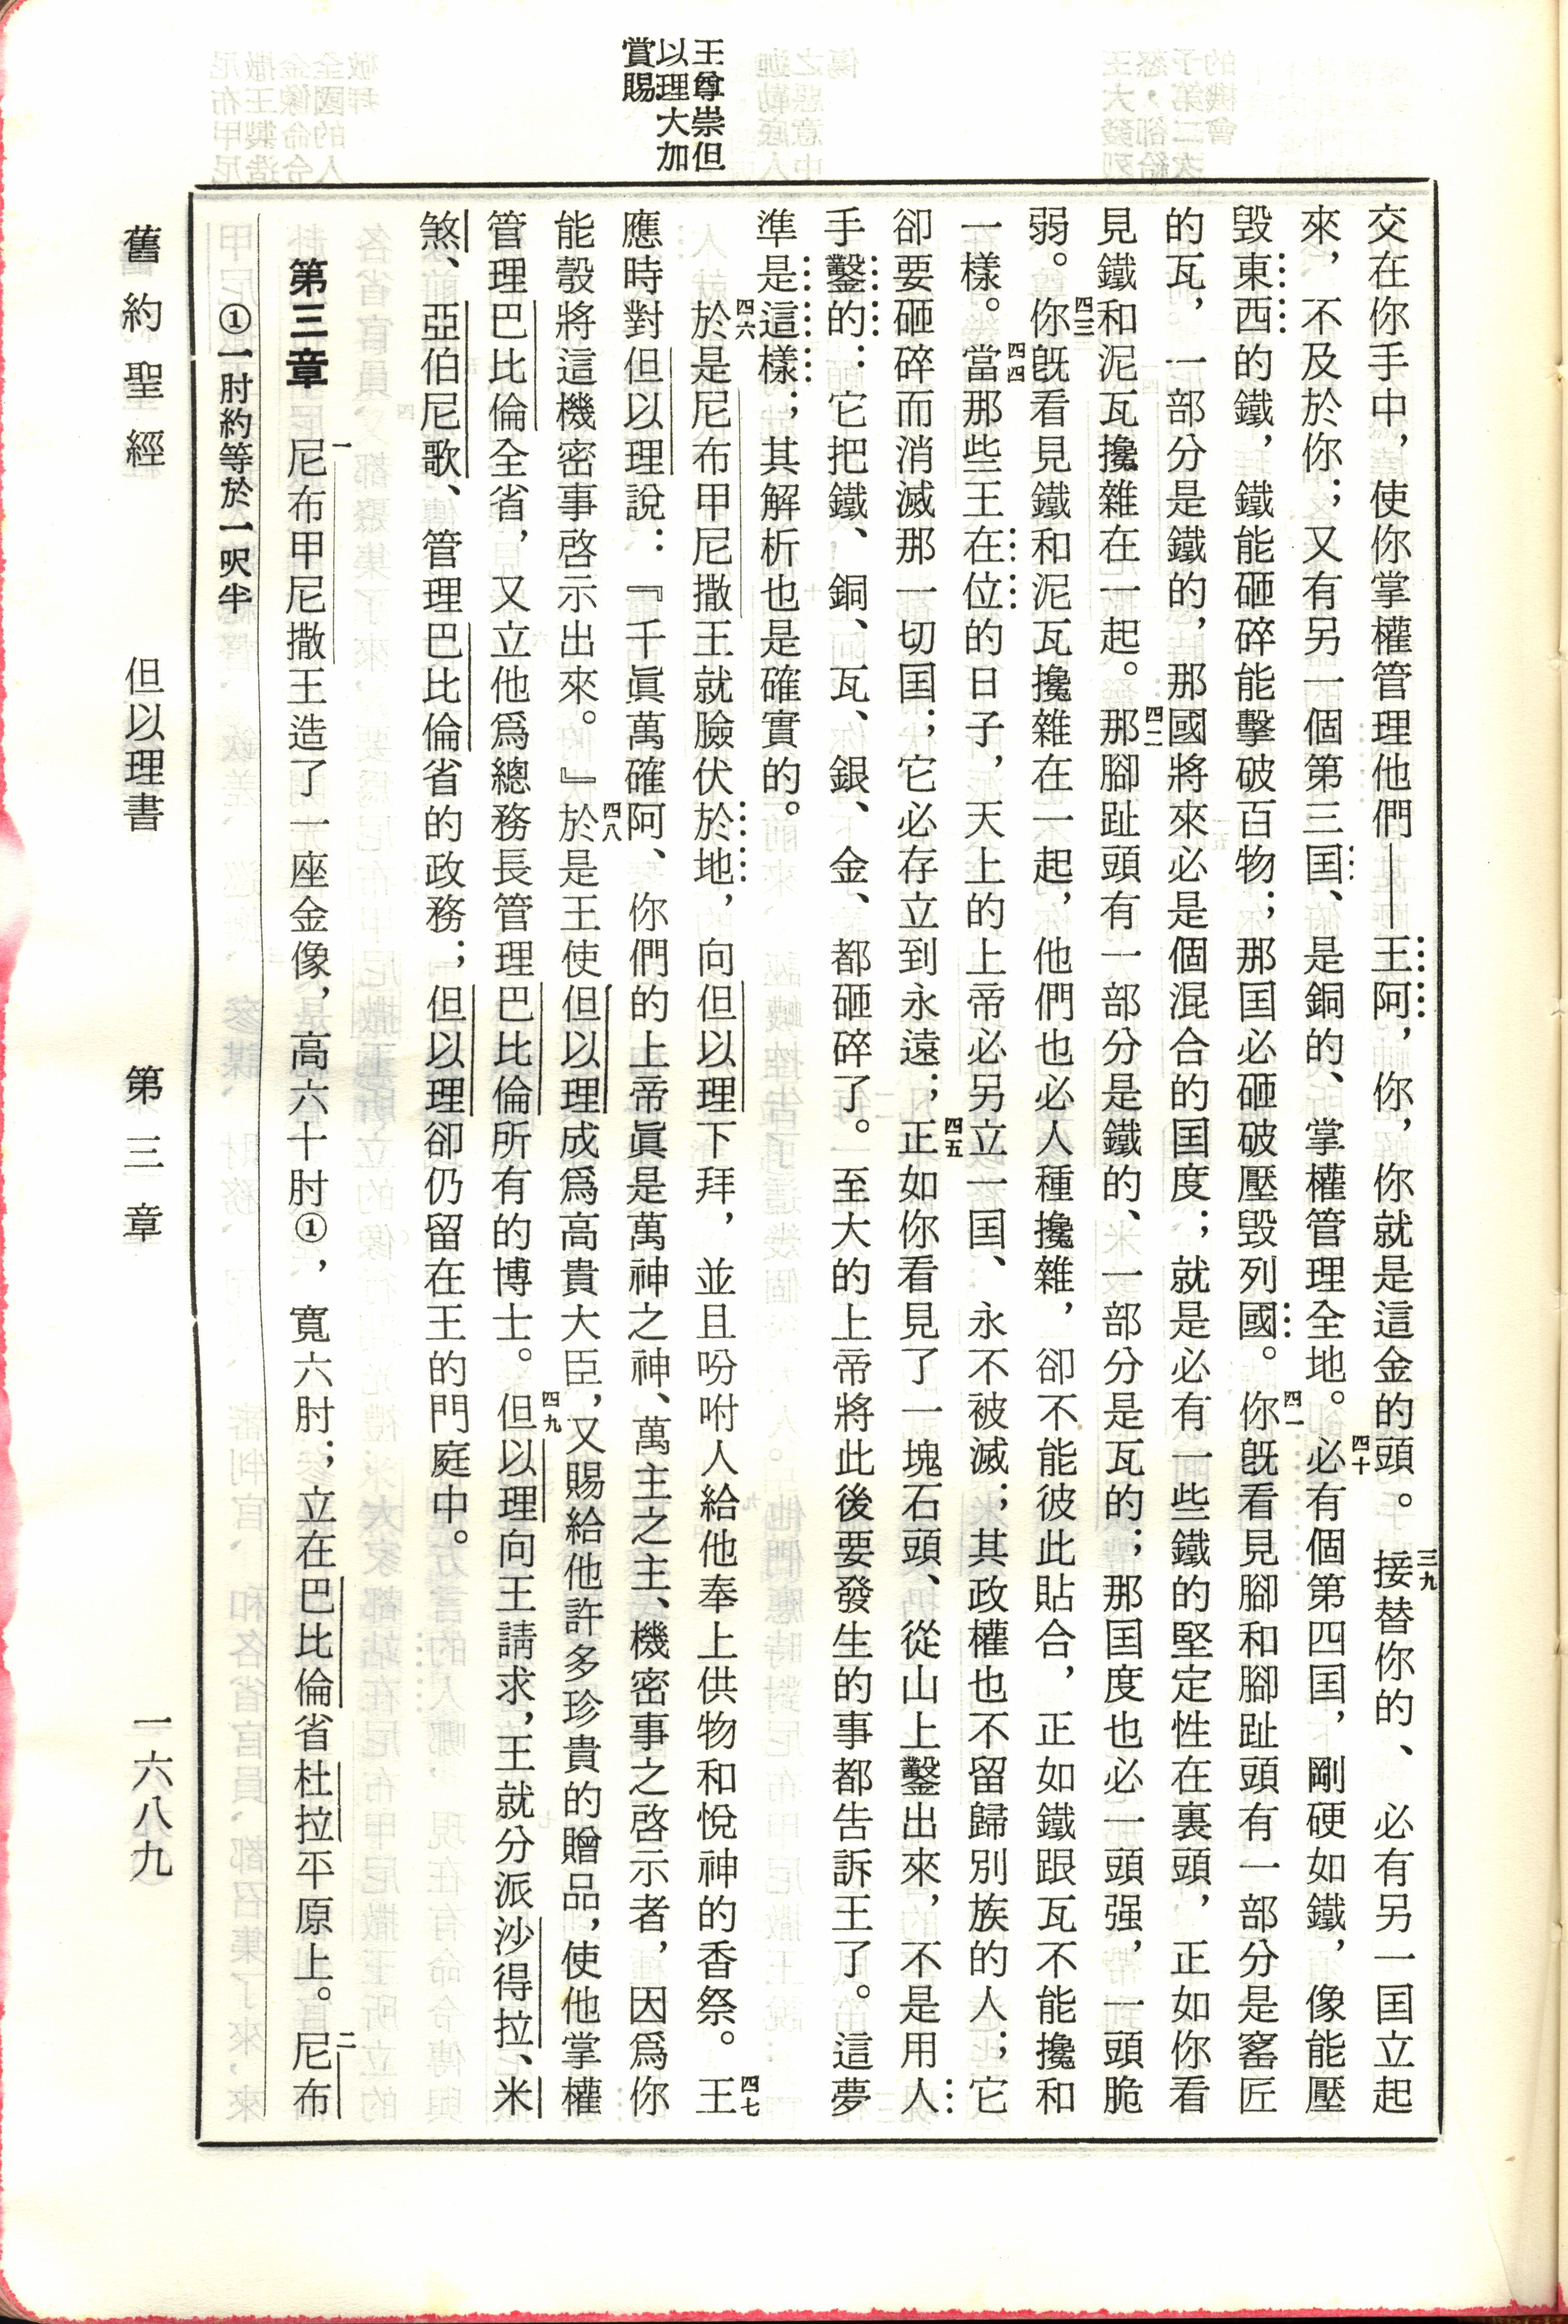 王尊崇但
以理大加
賞賜
交在你手中，使你掌權管理他們——王阿，你，你就是這金的頭。三九接替你的、必有另一囯立起
來，不及於你；又有另一個第三囯、是銅的、掌權管理全地。四十必有個第四囯，剛硬如鐵，像能壓
毀東西的鐵，鐵能砸碎能擊破百物；那囯必砸破壓毀列國。四一你旣看見腳和腳趾頭有一部分是窰匠
的瓦，一部分是鐵的，那國將來必是個混合的囯度；就是必有一些鐵的堅定性在裏頭，正如你看
見鐵和泥瓦攙雜在一起。四二那腳趾頭有一部分是鐵的、一部分是瓦的；那囯度也必一頭强，一頭脆
弱。四三你旣看見鐵和泥瓦攙雜在一起，他們也必人種攙雜，卻不能彼此貼合，正如鐵跟瓦不能攙和
一樣。四四當那些王在位的日子，天上的上帝必另立一囯、永不被滅；其政權也不留歸別族的人；它
卻要砸碎而消滅那一切囯；它必存立到永遠；四五正如你看見了一塊石頭、從山上鑿出來，不是用人
手鑿的：它把鐵、銅、瓦、銀、金、都砸碎了。至大的上帝將此後要發生的事都告訴王了。這夢
準是這樣；其解析也是確實的。
四六於是尼布甲尼撒王就臉伏於地，向但以理下拜，並且吩咐人給他奉上供物和悅神的香祭。四七王
應時對但以理說：『千眞萬確阿、你們的上帝眞是萬神之神、萬主之主、機密事之啓示者，因爲你
能彀將這機密事啓示出來。』四八於是王使但以理成爲高貴大臣，又賜給他許多珍貴的贈品，使他掌權
管理巴比倫全省，又立他爲總務長管理巴比倫所有的博士。四九但以理向王請求，王就分派沙得拉、米
煞、亞伯尼歌、管理巴比倫省的政務；但以理卻仍留在王的門庭中。
第三章 一尼布甲尼撒王造了一座金像，高六十肘①，寬六肘；立在巴比倫省杜拉平原上。二尼布
①一肘約等於一呎半
舊約聖經 但以理書 第三章 一六八九